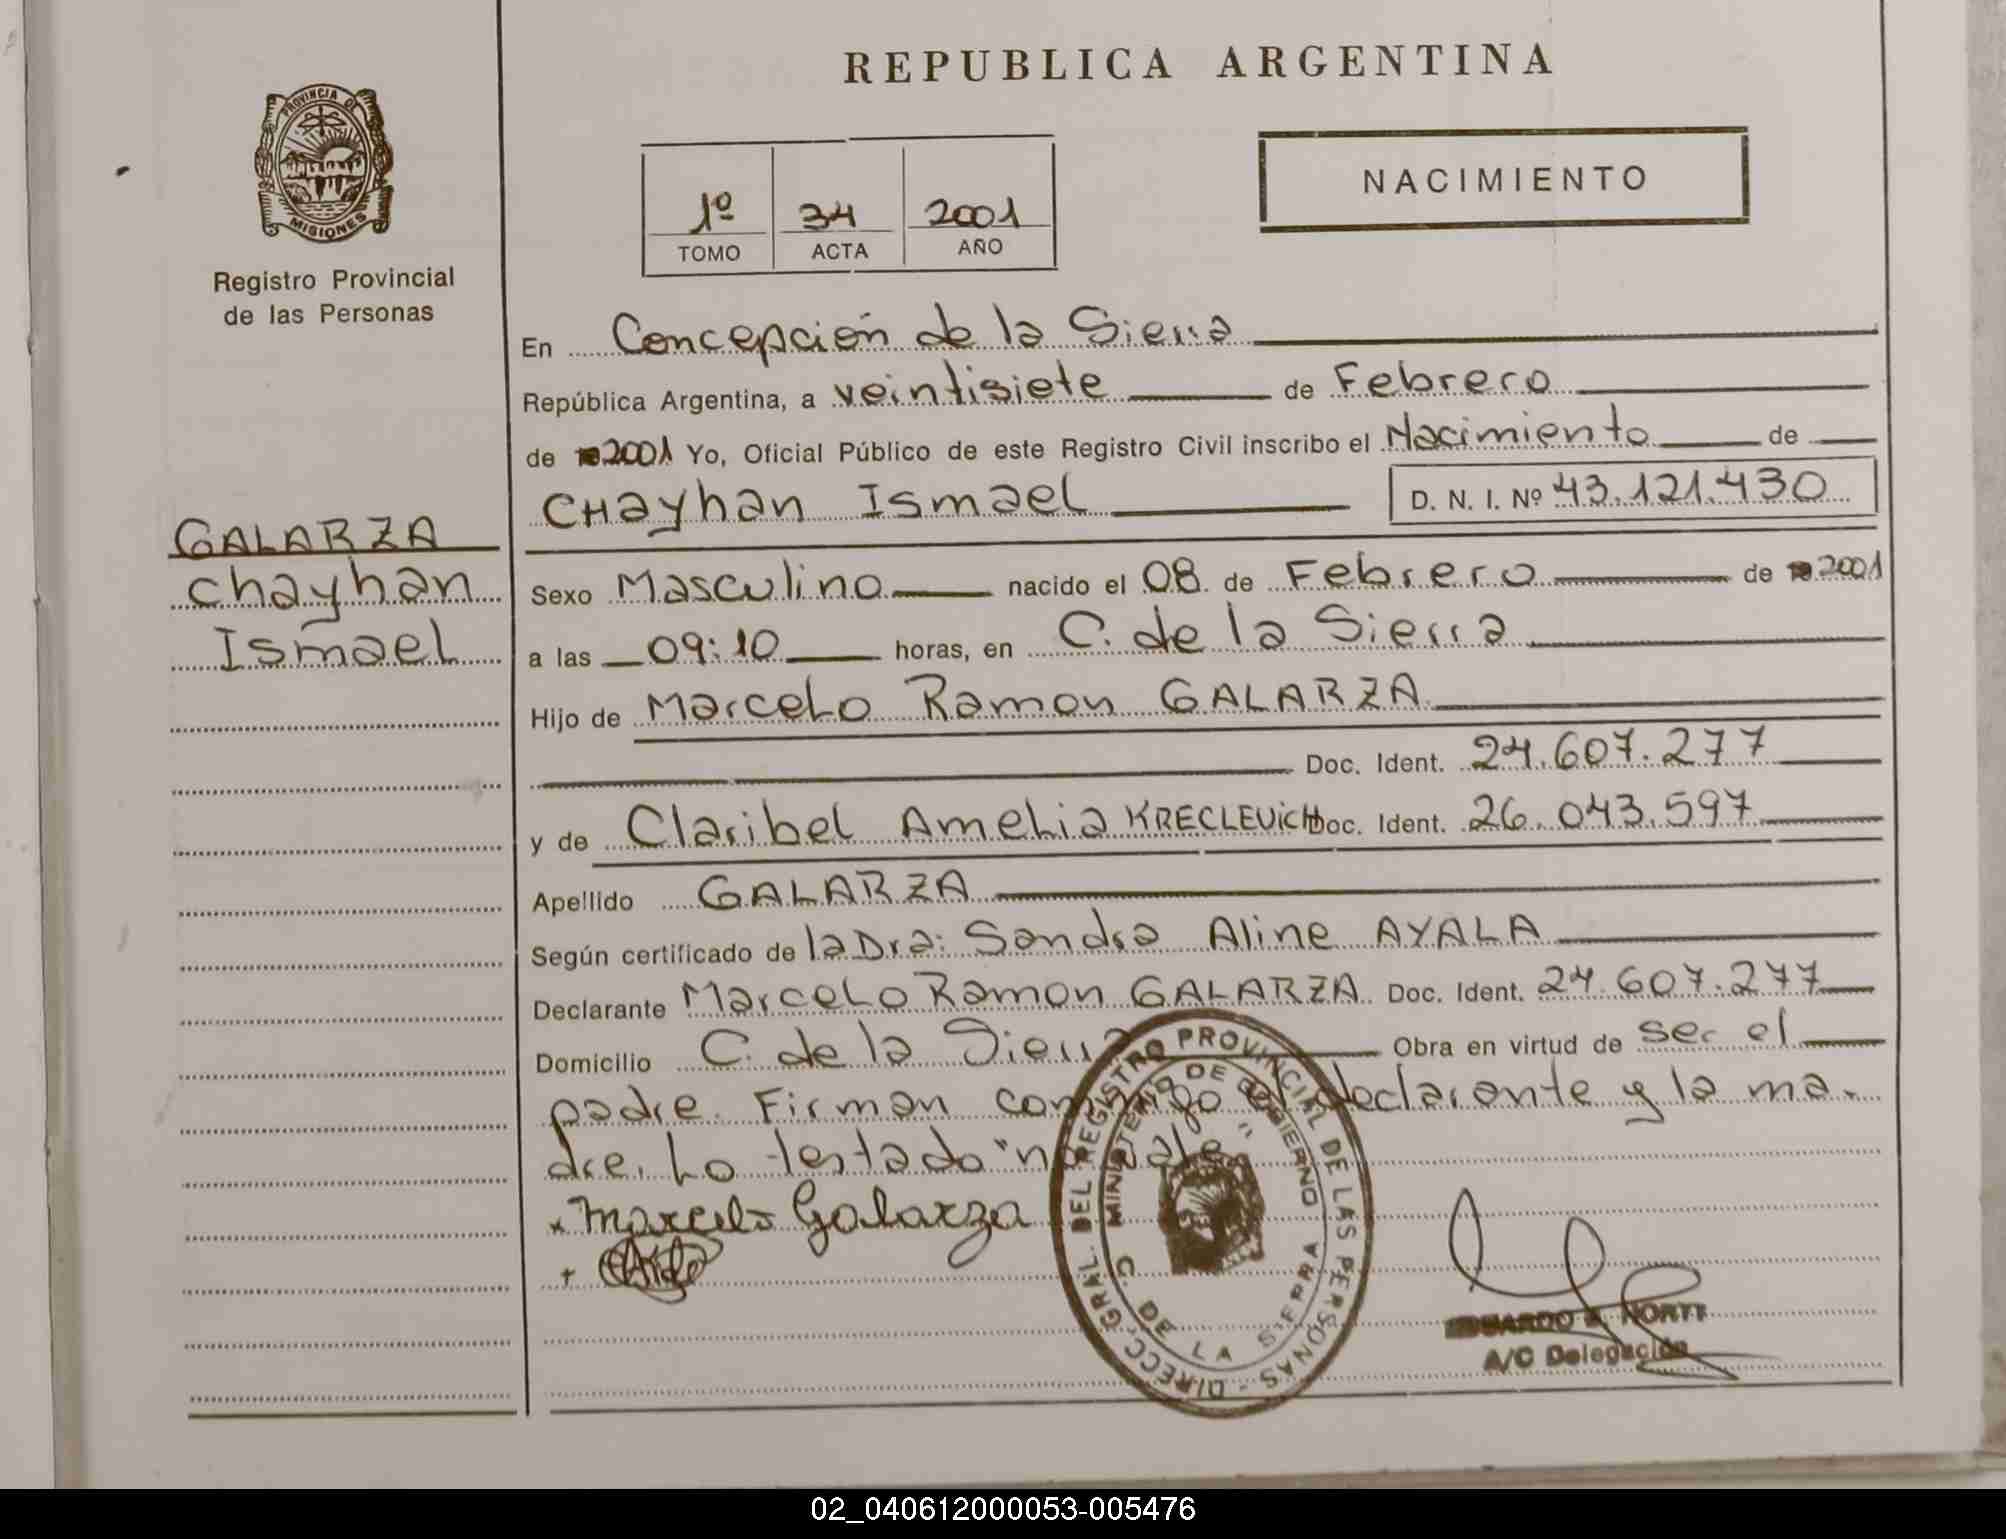 REPUBLICA ARGENTINA
PROVINCIA DE
MISIONES
Registro Provincial
de las Personas
1º 34 2001
TOMO ACTA AÑO
NACIMIENTO
En Concepción de la Sierra
República Argentina, a veintisiete de Febrero
de 2001 Yo, Oficial Público de este Registro Civil inscribo el Nacimiento de
CHayhan Ismael D. N. I. Nº 43.121.430
GALARZA
Chayhan
Ismael
Sexo Masculino nacido el 08 de Febrero de 2001
a las 09:10 horas, en C. de la Sierra
Hijo de Marcelo Ramon GALARZA
Doc. Ident. 24.607.277
y de Claribel Amelia KRECLEVICH Doc. Ident. 26.043.597
Apellido GALARZA
Según certificado de la Dra: Sandra Aline AYALA
Declarante Marcelo Ramon GALARZA Doc. Ident. 24.607.277
Domicilio C. de la Sierra Obra en virtud de ser el
padre. Firman conmigo el declarante y la ma-
dre. Lo testado "no vale"
x Marcelo Galarza
DIRECC. GRAL. DEL REGISTRO PROVINCIAL DE LAS PERSONAS -
MINISTERIO DE GOBIERNO
C. DE LA SIERRA
A/C Delegación
02_040612000053-005476